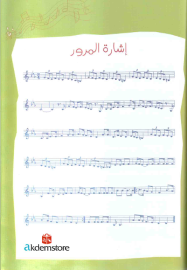 إشارة المرور
akdemstore